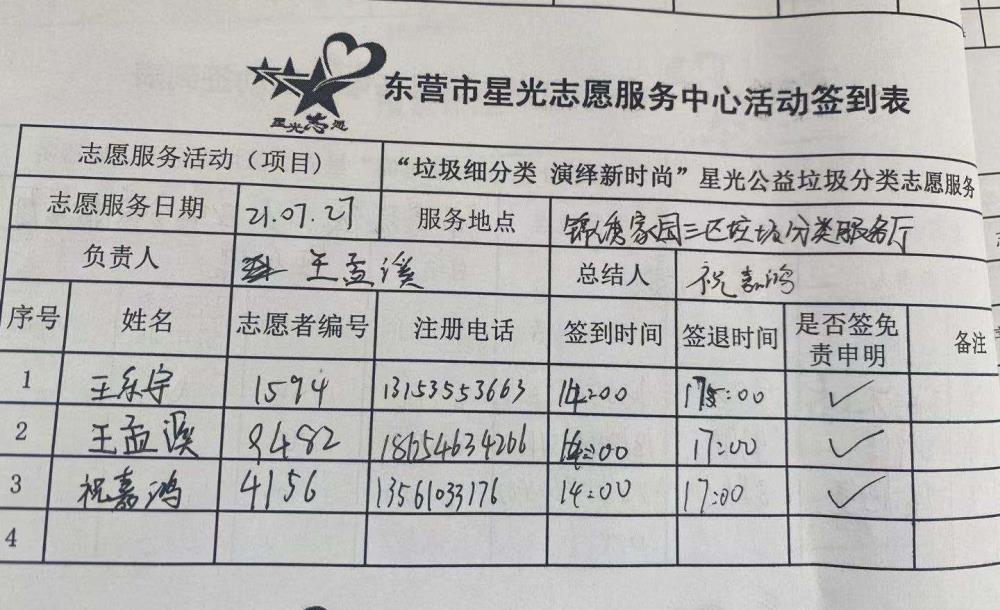 星光志愿
东营市星光志愿服务中心活动签到表
志愿服务活动（项目） “垃圾细分类 演绎新时尚”星光公益垃圾分类志愿服务
志愿服务日期 21.07.27 服务地点 锦绣家园三区垃圾分类服务厅
负责人 王孟溪 总结人 祝嘉鸿
序号 姓名 志愿者编号 注册电话 签到时间 签退时间 是否签免责申明 备注
1 王乐宇 1594 13153553663 14:00 17:00 ✓
2 王孟溪 9482 18654634266 14:00 17:00 ✓
3 祝嘉鸿 4156 13561033176 14:00 17:00 ✓
4